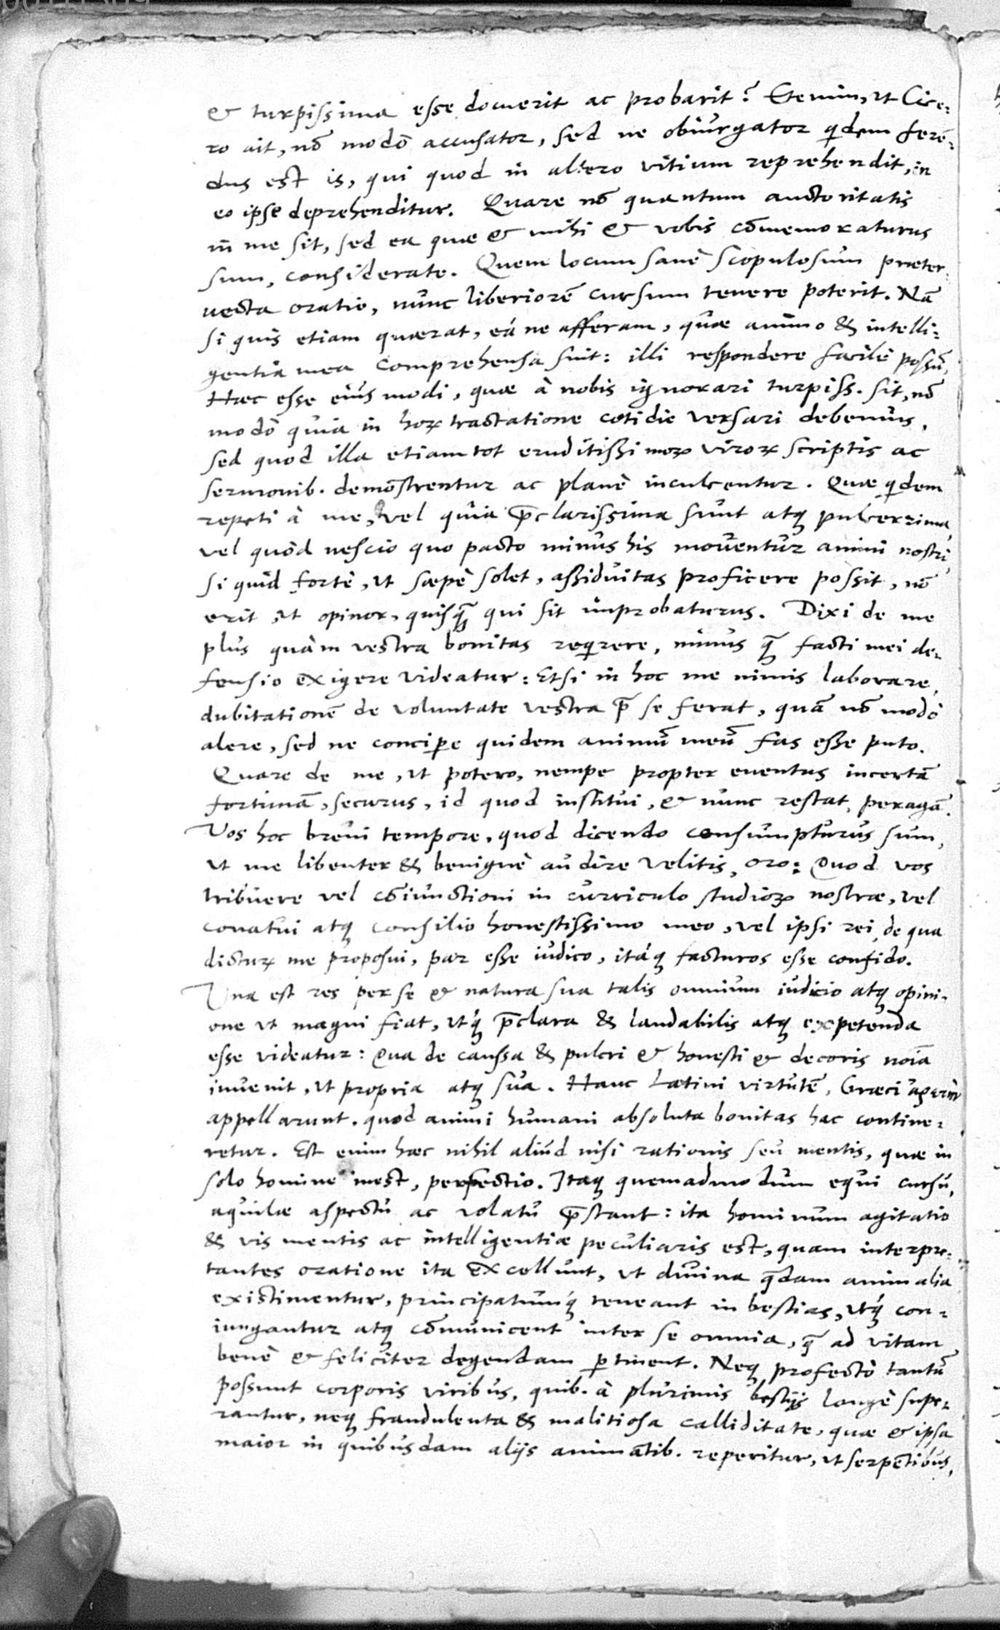 & turpissima esse docuerit ac probarit? Etenim, ut Cice-
ro ait, nō modō accusator, sed ne obiurgator q̄dem ferē-
dus est is, qui quod in altero vitium reprehendit, in
eo ipse deprehenditur. Quare nō quantum auctoritatis
in me sit, sed ea quae & mihi & vobis cōmemoraturus
sum, considerate. Quem locum sanè scopulosum praeter-
vecta oratio, nunc liberiorē cursum tenere poterit. Nā
si quis etiam quaerat, eá ne afferam, quae animo & intelli-
gentia mea comprehensa sint: illi respondere facilè possū,
Haec esse eiusmodi, quae à nobis ignorari turpiss. sit, nō
modō quia in hoꝝ tractatione cotidie versari debemus,
sed quod illa etiam tot eruditissimoꝝ viroꝝ scriptis ac
sermonib. demōstrentur ac planè inculcentur. Quae q̄dem
repeti à me, vel quia p̄clarissima sunt atq; pulcerrima
vel quòd nescio quo pacto minus his moventur animi nostri,
si quid fortè, ut saepè solet, assiduitas proficere possit, nō
erit, ut opinor, quisq̄ qui sit improbaturus. Dixi de me
plus quàm vestra bonitas reqrere, minus q̄ facti mei de-
fensio exigere videatur: Etsi in hoc me nimis laborare,
dubitationē de voluntate vestra p̄ se ferat, quā nō modò
alere, sed ne concipe quidem animū meū fas esse puto.
Quare de me, ut potero, nempe propter eventus incertā
fortunā, securus, id quod institui, & nunc restat, peragā.
Vos hoc brevi tempore, quod dicendo consumpturus sum,
ut me libenter & benignè audire velitis, oro: Quod vos
tribuere vel cōiunctioni in curriculo studioꝝ nostrae, vel
conatui atq; consilio honestissimo meo, vel ipsi rei, de qua
dictuꝝ me proposui, par esse iudico, itáq; facturos esse confido.
Una est res per se & natura sua talis omnium iudicio atq; opini-
one ut magni fiat, utq́; p̄clara & laudabilis atq; expetenda
esse videatur: Qua de caussa & pulcri & honesti & decoris noīa
invenit, ut propria atq; sua. Hanc Latini virtutē, Graeci ἀρετὴν
appellarunt. quod animi humani absoluta bonitas hac contine-
retur. Est enim haec nihil aliud nisi rationis seu mentis, quae in
solo homine inest, perfectio. Itaq; quemadmodum equi cursu,
aquilae aspectu ac volatu p̄stant: ita hominum agitatio
& vis mentis ac intelligentiae peculiaris est, quam interpre-
tantes oratione ita excellunt, ut divina q̄dam animalia
existimentur, principatumq́; teneant in bestias, utq́; con-
iungantur atq; cōmunicent inter se omnia, q̄ ad vitam
benè & feliciter degendam ptinent. Neq; profectò tantū
possunt corporis viribus, quib. à plurimis bestijs longè supe-
rantur, neq; fraudulenta & malitiosa calliditate, quae & ipsa
maior in quibusdam alijs animātib. reperitur, ut serpētibus,